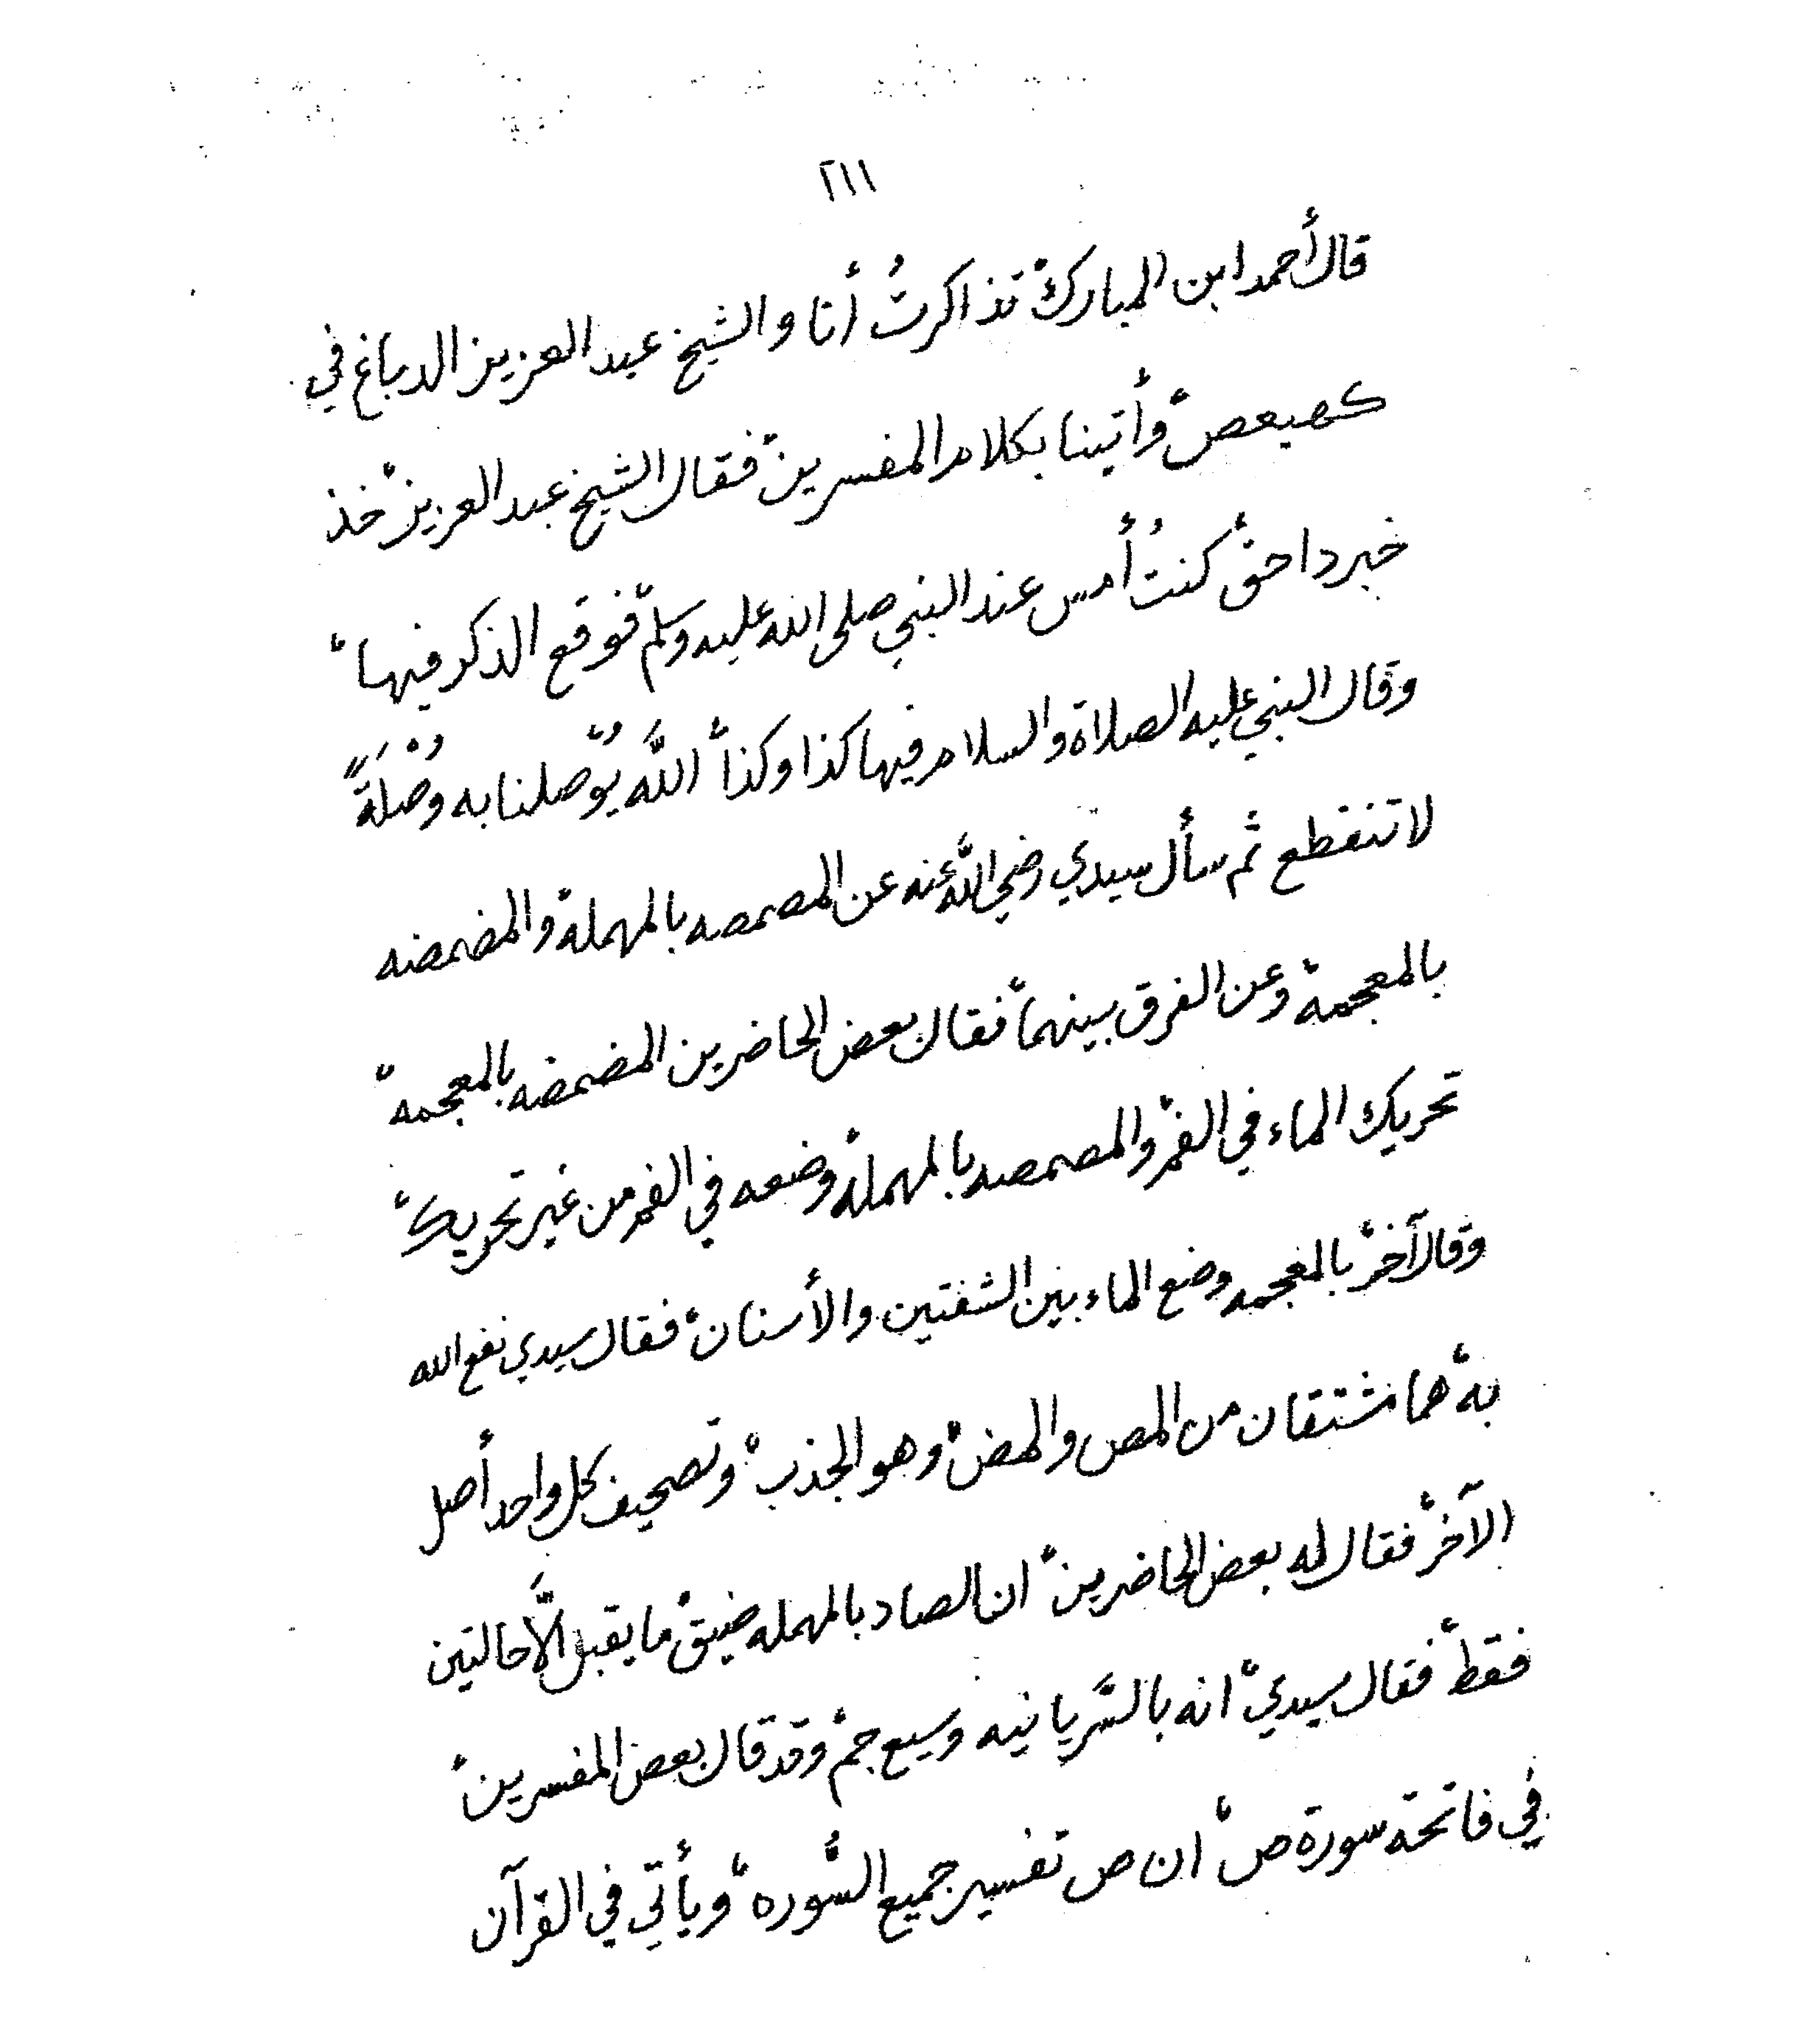 ٢١١
قال أحمد ابن المبارك، تذاكرتُ أنا والشيخ عبد العزيز الدباغ في
كهيعص، وأتينا بكلام المفسرين، فقال الشيخ عبد العزيز، خذ
خبر داحق، كنتُ أمس عند النبي صلى الله عليه وسلم، فوقع الذكر فيها،
وقال النبي عليه الصلاة والسلام فيها كذا وكذا، اللَّه يُوّصلنا به وُصْلَةً
لا تنقطع، ثم سأل سيدي رضي اللَّه عنه عن المصمصه بالمهملة، والمضمضه
بالمعجمة، وعن الفرق بينهما، فقال بعض الحاضرين المضمضه بالمعجمة،
تحريك الماء في الفم، والمصمصه بالمهملة، وضعه في الفم من غير تحريك،
وقال آخر، بالمعجمه وضع الماء بين الشفتين والأسنان، فقال سيدي نفع الله
به، هما مشتقان من المص والمض، وهو الجذب، وتصحيف كل واحد أصل
الآخر، فقال له بعض الحاضرين، ان الصاد بالمهمله ضيق، ما يقبل الَّا حالتين
فقط، فقال سيدي، انه بالسَّريانيه وسيع جم، وقد قال بعض المفسرين،
في فاتحة سورة ص، ان ص تفسير جميع السُّوره، ويأتي في القرآن